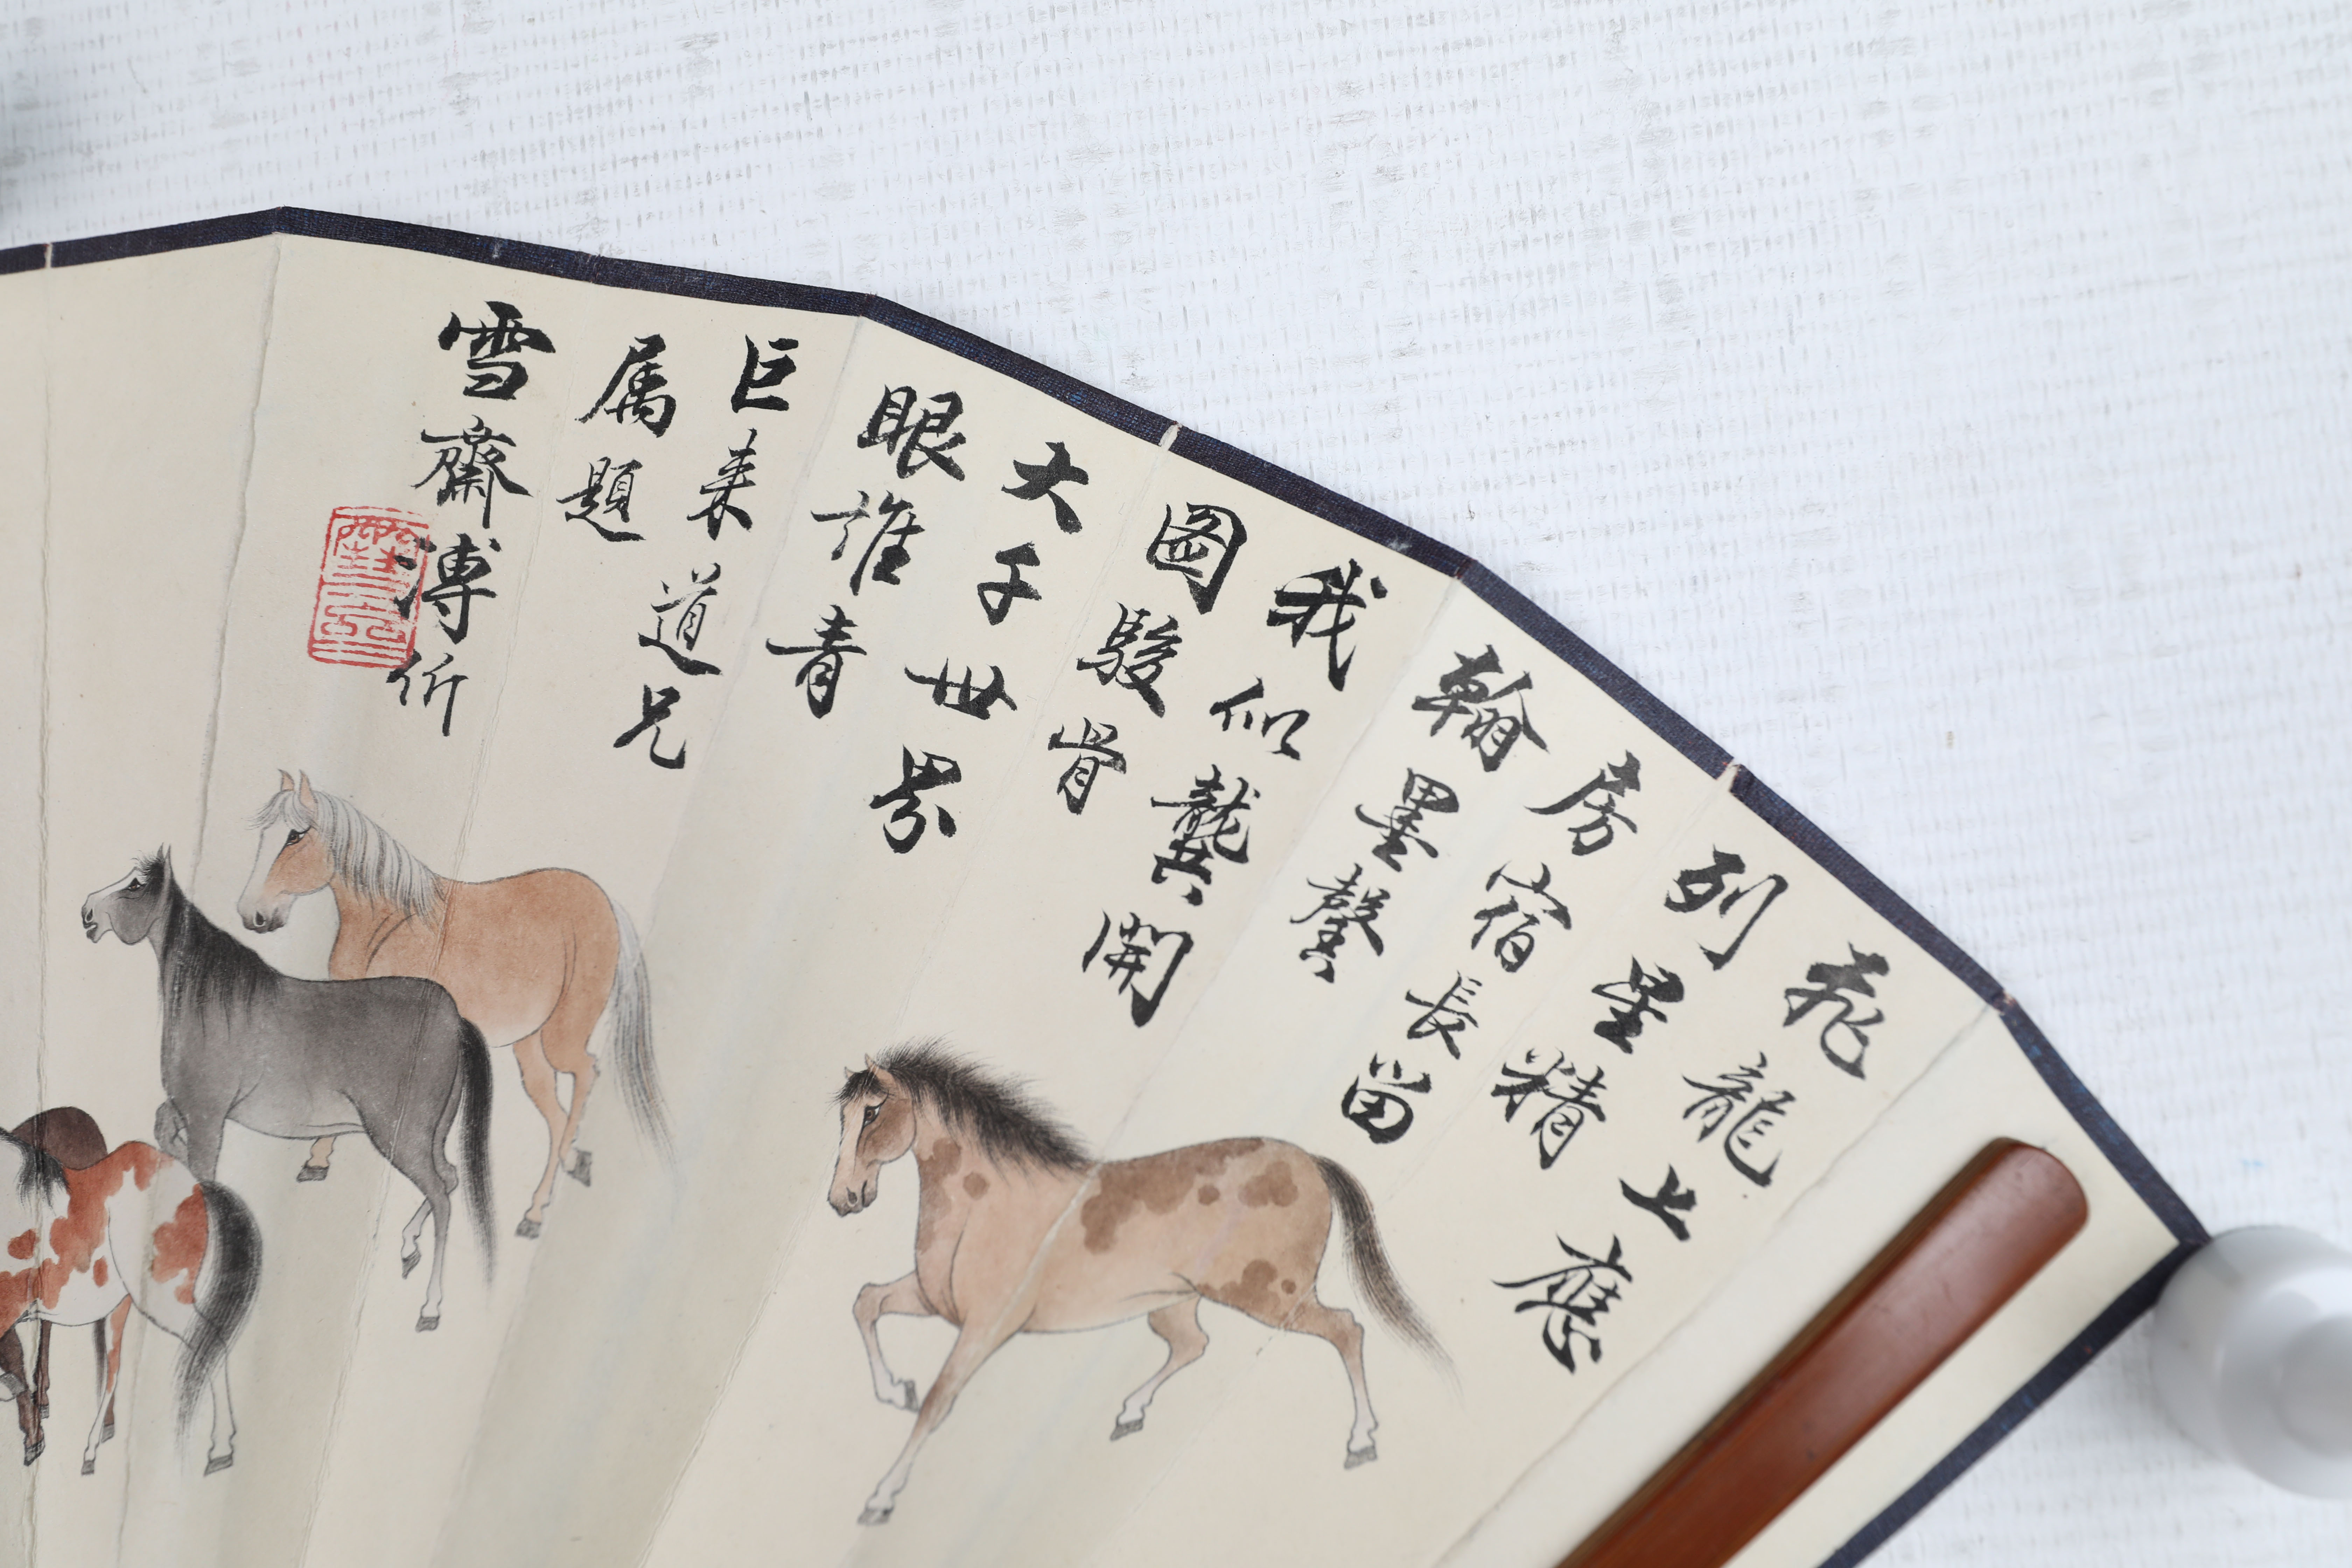 飛龍上應
列星精
房宿長留
翰墨馨
我似龔開
圖駿骨
大千世界
眼誰青
巨来道兄
属題
雪齋溥伒